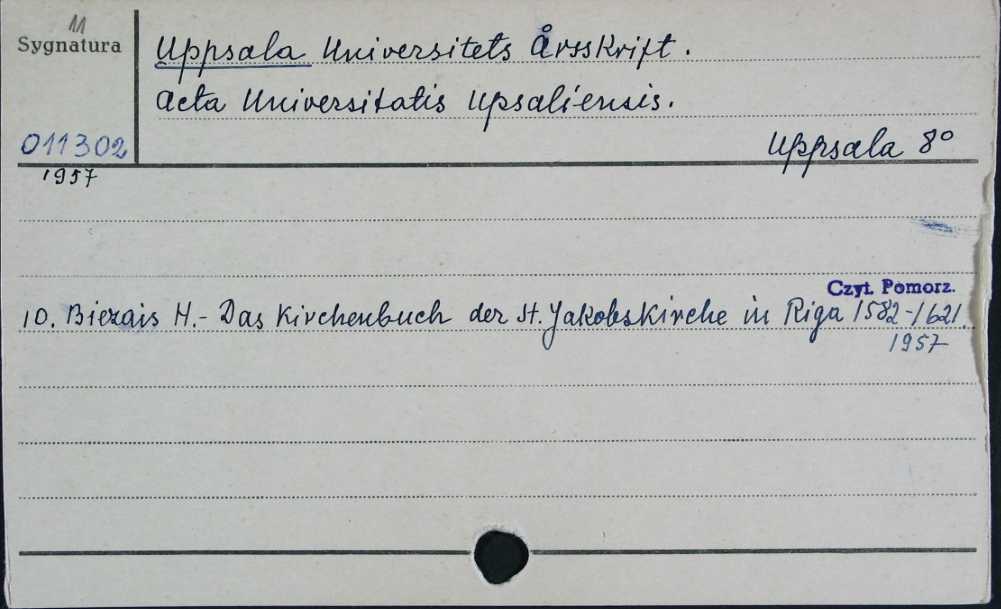 11
Sygnatura
Uppsala Universitets Årsskrift.
Acta Universitatis Upsaliensis.
011302
Uppsala 8°
1957
Czyt. Pomorz.
10. Biezais H. - Das Kirchenbuch der St. Jakobskirche in Riga 1582-1621.
1957